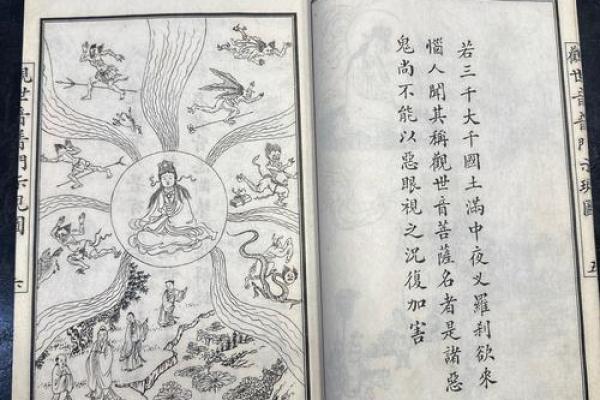 觀世音普門示現圖
五
若三千大千國土滿中夜乂羅刹欲來
惱人聞其稱觀世音菩薩名者是諸惡
鬼尚不能以惡眼視之況復加害
觀世音普門示現圖
六